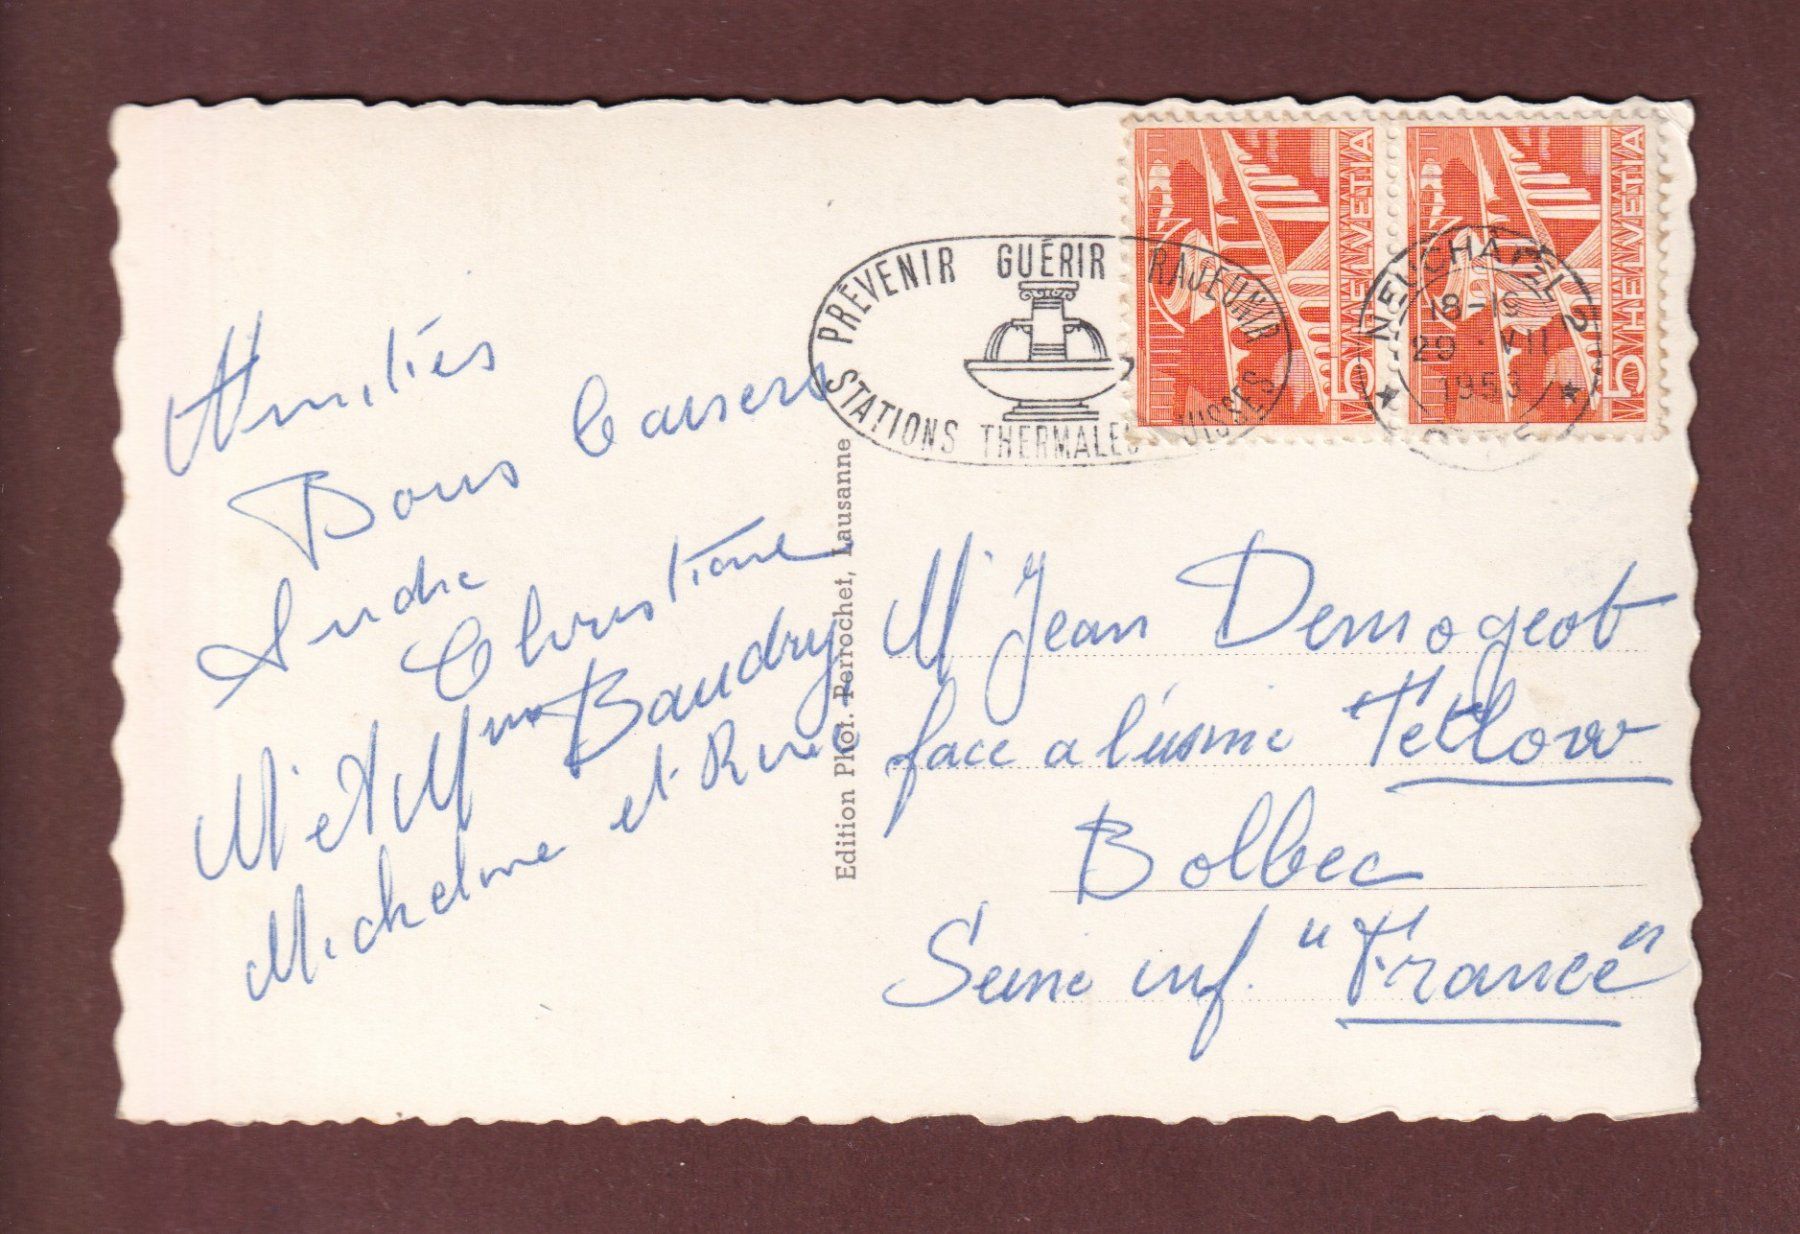 Amitiés
Bons baisers
Andre
Christiane
Mr et Mme Baudry
Micheline et René
Edition Phot. Perrochet, Lausanne
PRÉVENIR GUÉRIR RAJEUNIR
STATIONS THERMALES SUISSES
HELVETIA
5
HELVETIA
5
NEUCHÂTEL 2
18-19
29.VII
1953
Mr Jean Demogeot
face a l'usine Tetlow
Bolbec
Seine inf. "France"